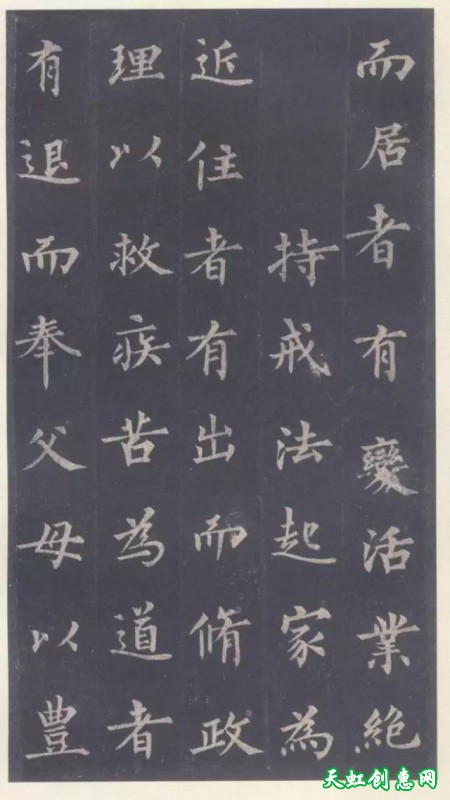 而居者有變活業絕
持戒法起家為
近住者有出而脩政
理以救疾苦為道者
有退而奉父母以豊
天虹创惠网